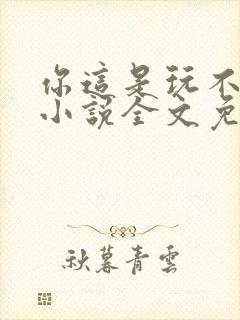 你這是玩不
小說全文免
秋暮青雲